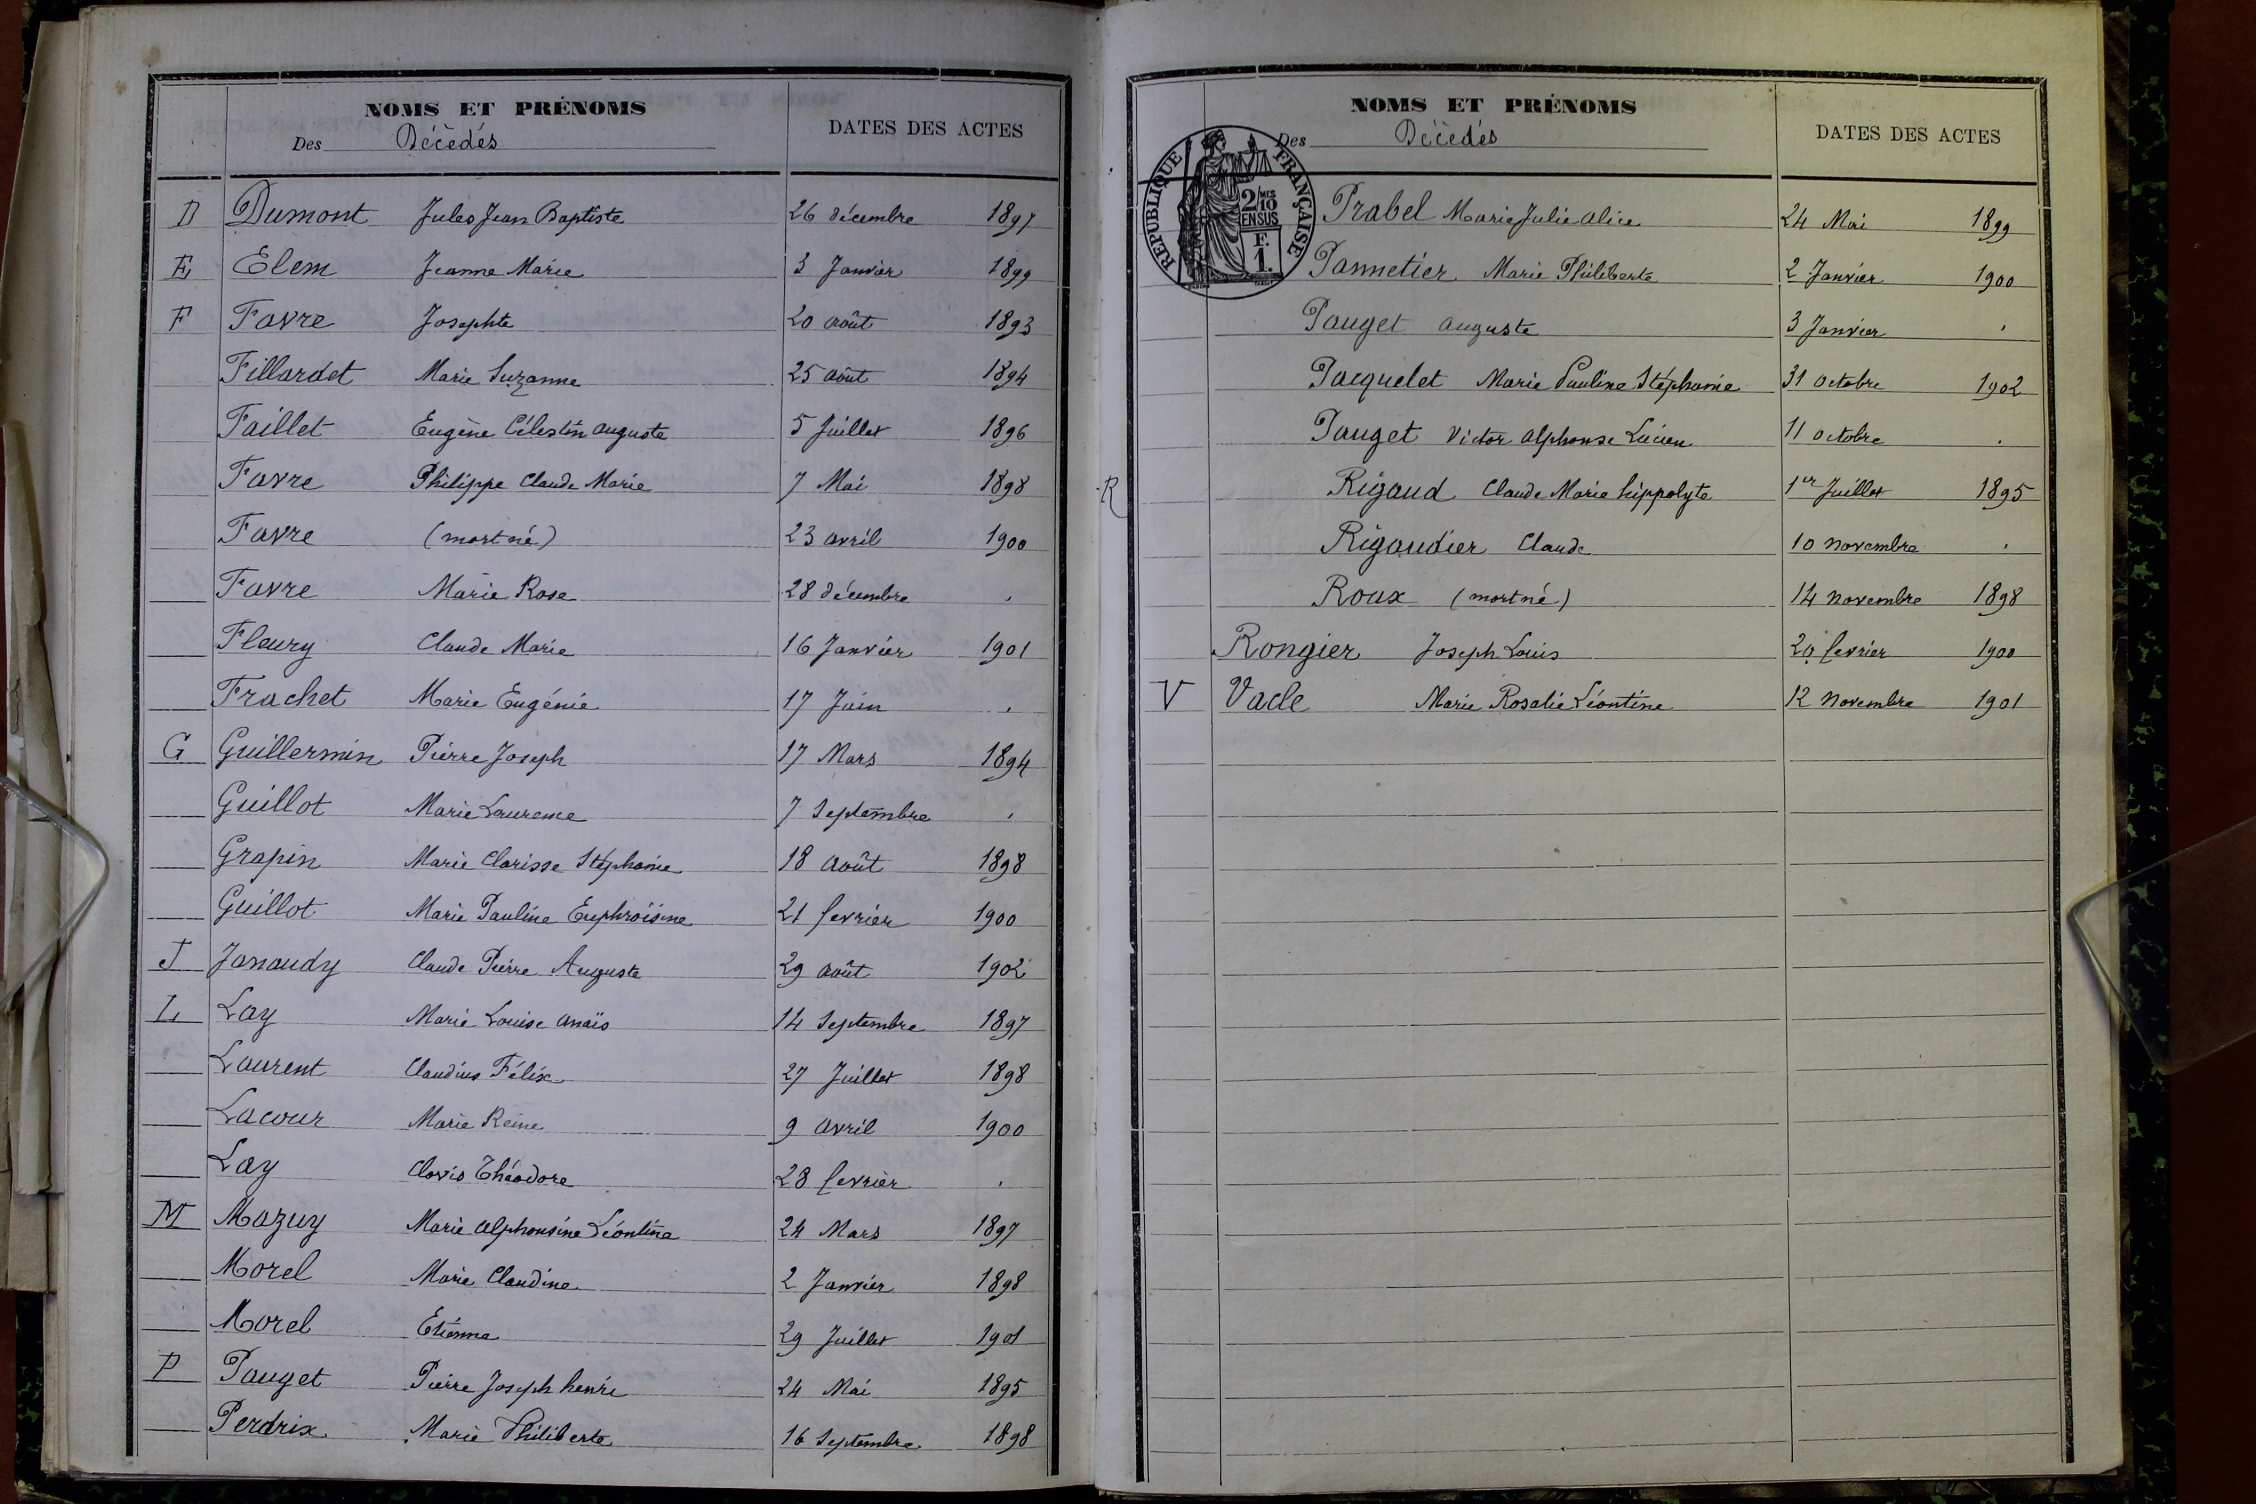 NOMS ET PRÉNOMS
Des Décédés
DATES DES ACTES
D Dumont Jules Jean Baptiste 26 décembre 1897
E Elem Jeanne Marie 3 Janvier 1899
F Favre Josephte 20 août 1893
Fillardet Marie Suzanne 25 août 1894
Faillet Eugène Célestin auguste 5 Juillet 1896
Favre Philippe Claude Marie 7 Mai 1898
Favre (mort né) 23 avril 1900
Favre Marie Rose 28 décembre .
Fleury Claude Marie 16 Janvier 1901
Frachet Marie Eugénie 17 Juin .
G Guillermin Pierre Joseph 17 Mars 1894
Guillot Marie 7 Septembre .
Grapin Marie Clarisse Stéphanie 18 août 1898
Guillot Marie Pauline Euphroisine 21 fevrier 1900
J Janaudy Claude Pierre Auguste 29 août 1902
L Lay Marie Louise anaïs 14 Septembre 1897
Laurent Claudius Félix 27 Juillet 1898
Lacour Marie Reine 9 avril 1900
Lay Clovis Théodore 28 fevrier .
M Mazuy Marie alphonsine Léontine 24 Mars 1897
Morel Marie Claudine 2 Janvier 1898
Morel Etienne 29 Juillet 1901
P Pauget Pierre Joseph henri 24 Mai 1895
Perdrix Marie Philiberte 16 Septembre 1898
NOMS ET PRÉNOMS
Des Décédés
DATES DES ACTES
RÉPUBLIQUE FRANÇAISE
2/10 MES
EN SUS
F.
1.
Prabel Marie Julie alice 24 Mai 1899
Pannetier Marie Philiberte 2 Janvier 1900
Pauget auguste 3 Janvier .
Pacquelet Marie Pauline Stéphanie 31 octobre 1902
Pauget Victor alphonse Lucien 11 octobre .
R Rigaud Claude Marie hippolyte 1er Juillet 1895
Rigaudier Claude 10 novembre .
Roux (mort né) 14 novembre 1898
Rongier Joseph Louis 20 fevrier 1900
V Vacle Marie Rosalie Léontine 12 novembre 1901